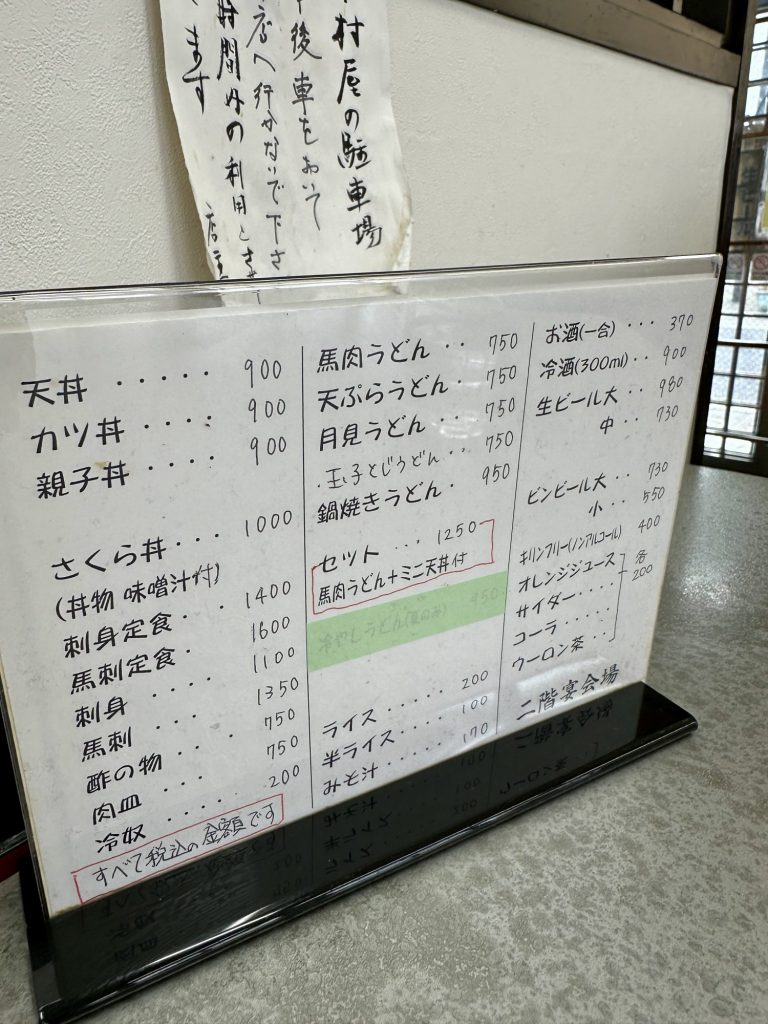 村屋の駐車場
後車をおいて
店へ行かないで下さ
時間外の利用と
ます
店主
天丼 ・・・・・ 900
カツ丼 ・・・・ 900
親子丼 ・・・・ 900
さくら丼・・・ 1000
(丼物 味噌汁付)
刺身定食・・・ 1400
馬刺定食・ 1600
刺身 ・・・・ 1100
馬刺 ・・・・ 1350
酢の物 ・・・・ 750
肉皿 ・・・・ 750
冷奴 ・・・・・ 200
すべて税込の金額です
馬肉うどん ・・ 750
天ぷらうどん・ 750
月見うどん ・・ 750
・玉子とじうどん・・ 750
鍋焼きうどん・ 950
セット ・・・ 1250
馬肉うどん+ミニ天丼付
冷やしうどん(夏のみ) 950
ライス ・・・・・ 200
半ライス・・・・・ 100
みそ汁 ・・・・・ 170
お酒(一合) ・・・ 370
冷酒(300ml)・・ 900
生ビール大 ・・ 980
中 ・・ 730
ビンビール大 ・・ 730
小 ・・ 550
キリンフリー(ノンアルコール) 400
オレンジジュース 各
サイダー・・・・ 200
コーラ ・・・・・
ウーロン茶 ・・
二階宴会場